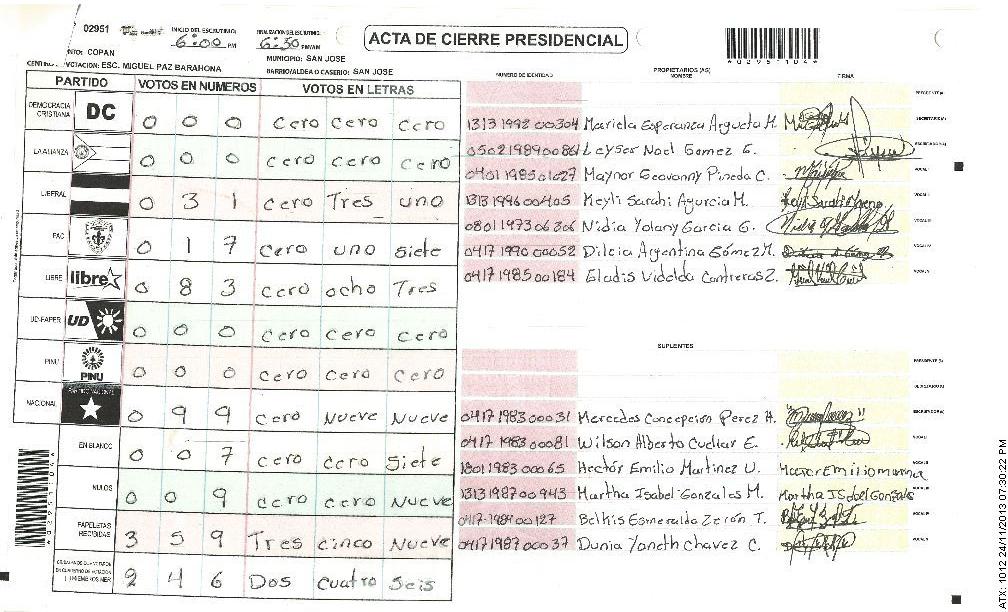 02951
INICIO DEL ESCRUTINIO: 6:00 PM
FINALIZACION DEL ESCRUTINIO: 6:30 PM/AM
ACTA DE CIERRE PRESIDENCIAL
*02951104*
NTO: COPAN
MUNICIPIO: SAN JOSE
VOTACION: ESC. MIGUEL PAZ BARAHONA
BARRIO/ALDEA O CASERIO: SAN JOSE
PARTIDO VOTOS EN NUMEROS VOTOS EN LETRAS
DEMOCRACIA CRISTIANA DC 0 0 0 cero cero cero
LA ALIANZA 0 0 0 cero cero cero
LIBERAL 0 3 1 cero Tres uno
PAC 0 1 7 cero uno siete
LIBRE libre 0 8 3 cero ocho Tres
UD-FAPER UD 0 0 0 cero cero cero
PINU PINU 0 0 0 cero cero cero
NACIONAL 0 9 9 cero Nueve Nueve
EN BLANCO 0 0 7 cero cero siete
NULOS 0 0 9 cero cero Nueve
PAPELETAS RECIBIDAS 3 5 9 Tres cinco Nueve
2 4 6 Dos cuatro seis
NUMERO DE IDENTIDAD PROPIETARIOS (AS) NOMBRE FIRMA
PRESIDENTE(A)
1313 1992 00304 Mariela Esperanza Argueta M. SECRETARIO(A)
0502 1989 00861 Leyser Noel Gomez G. ESCRUTADOR(A)
0401 1985 01027 Maynor Geovanny Pineda C. VOCAL I
1313 1996 00405 Keyli Sarahi Ayurcia M.
0801 1973 06306 Nidia Yolany Garcia G. VOCAL III
0417 1990 00052 Dilcia Argentina Gómez M. VOCAL IV
0417 1985 00184 Eladis Vidalda Contreras Z. VOCAL V
SUPLENTES
PRESIDENTE(A)
SECRETARIO(A)
0417 1983 00031 Mercedes Concepcion Perez A. ESCRUTADOR(A)
0417 1983 00081 Wilson Alberto Cuellar E. VOCAL I
1801 1983 00065 Hectór Emilio Martinez U.
1313 1987 00943 Martha Isabel Gonzales M. Martha ISabel Gonzales
0417-1989 00127 Belkis Esmeralda Zerón T.
0417 1987 00037 Dunia Yaneth Chavez C. VOCAL V
*02951104*
ATX: 1012 24/11/2013 07:30:22 PM